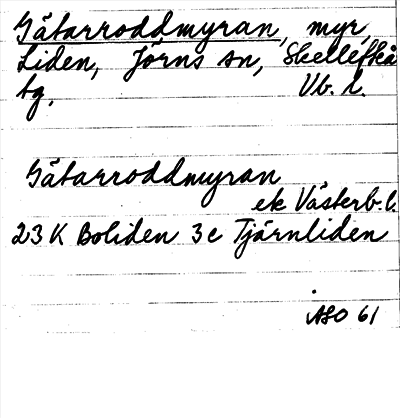 Gätarroddmyran, myr,
Liden, Jörns sn, Skellefteå
tg, Vb. l.
Gätarroddmyran
ek Västerb. l.
23 K Boliden 3 c Tjärnliden
ASO 61